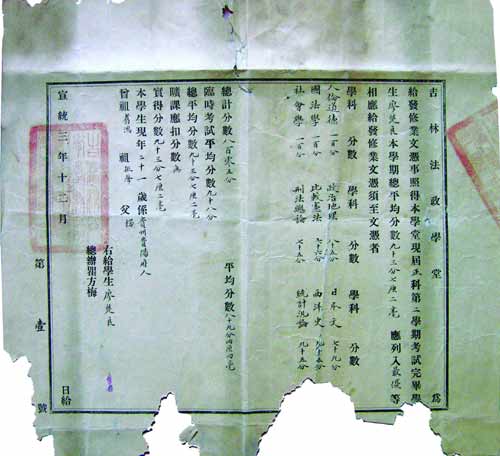 吉林法政學堂 為
給發修業文憑事照得本學堂現屆正科第二學期考試完畢學
生廖楚良本學期總平均分數九十三分七厘二毫 應列入最優等
相應給發修業文憑須至文憑者
學科 分數 學科 分數 學科 分數
人倫道德 一百分 政治地理 八十五分 日本文 七十九分
國法學 一百分 比較憲法 七十六分 西洋史 九十五分
社會學 一百分 刑法總論 七十五分 統計汎論 九十五分
總計分數八百零五分 平均分數八十九分四厘四毫
臨時考試平均分數九十八分
總平均分數九十三分七厘二毫
曠課應扣分數無
實得分數九十三分七厘二毫
本學生現年二十一歲係貴州貴陽府人
曾祖 祖 父
右給學生廖楚良
總辦瞿方梅
宣統三年十二月 日給
第壹號